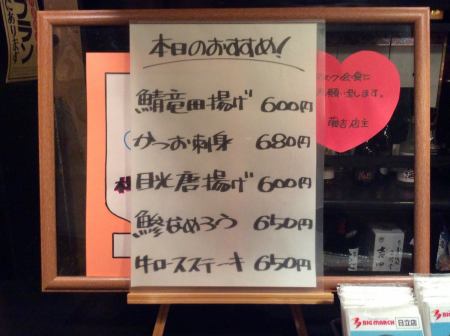 本日のおすすめ!
鯖竜田揚げ 600円
かつお刺身 680円
目光唐揚げ 600円
鰺なめろう 650円
牛ロースステーキ 650円
お願い致します。
店主
BIG MARCH 日立店